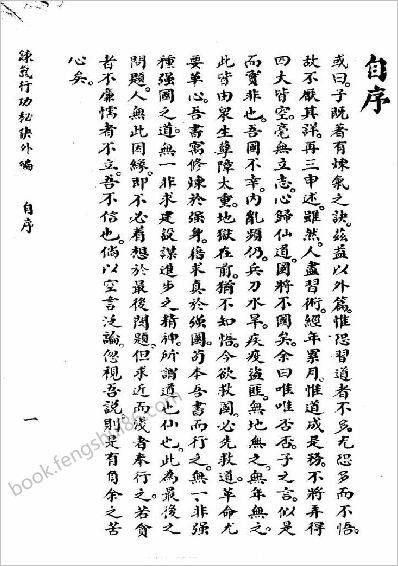 自序
或曰。子既著有煉氣之訣。茲益以外篇。惟恐習道者不多。尤恐多而不悟。
故不厭其詳。再三申述。雖然。人盡習術。經年累月。惟道成是務。不將弄得
四大皆空。毫無立志。心歸仙道。國將不國矣。余曰唯唯否否。子之言。似是
而實非也。吾國不幸。內亂頻仍。兵刀水旱。疾疫盜匪。無地無之。無年無之。
此皆由眾生孽障太重。地獄在前。猶不知悟。今欲救國。必先救道。革命尤
要革心。吾書寓修煉於強身。借求真於強國。苟本吾書而行之。無一非強
種強國之道。無一非求建設謀進步之精神。所謂道也仙也。此為最後之
問題。人無此因緣。即不必着想於最後問題。但求近而淺者奉行之。若貧
者不廉。懦者不立。吾不信也。倘以空言泛論。忽視吾說。則是有負余之苦
心矣。
煉氣行功秘訣外編 自序 一
book.fengsbu888.com